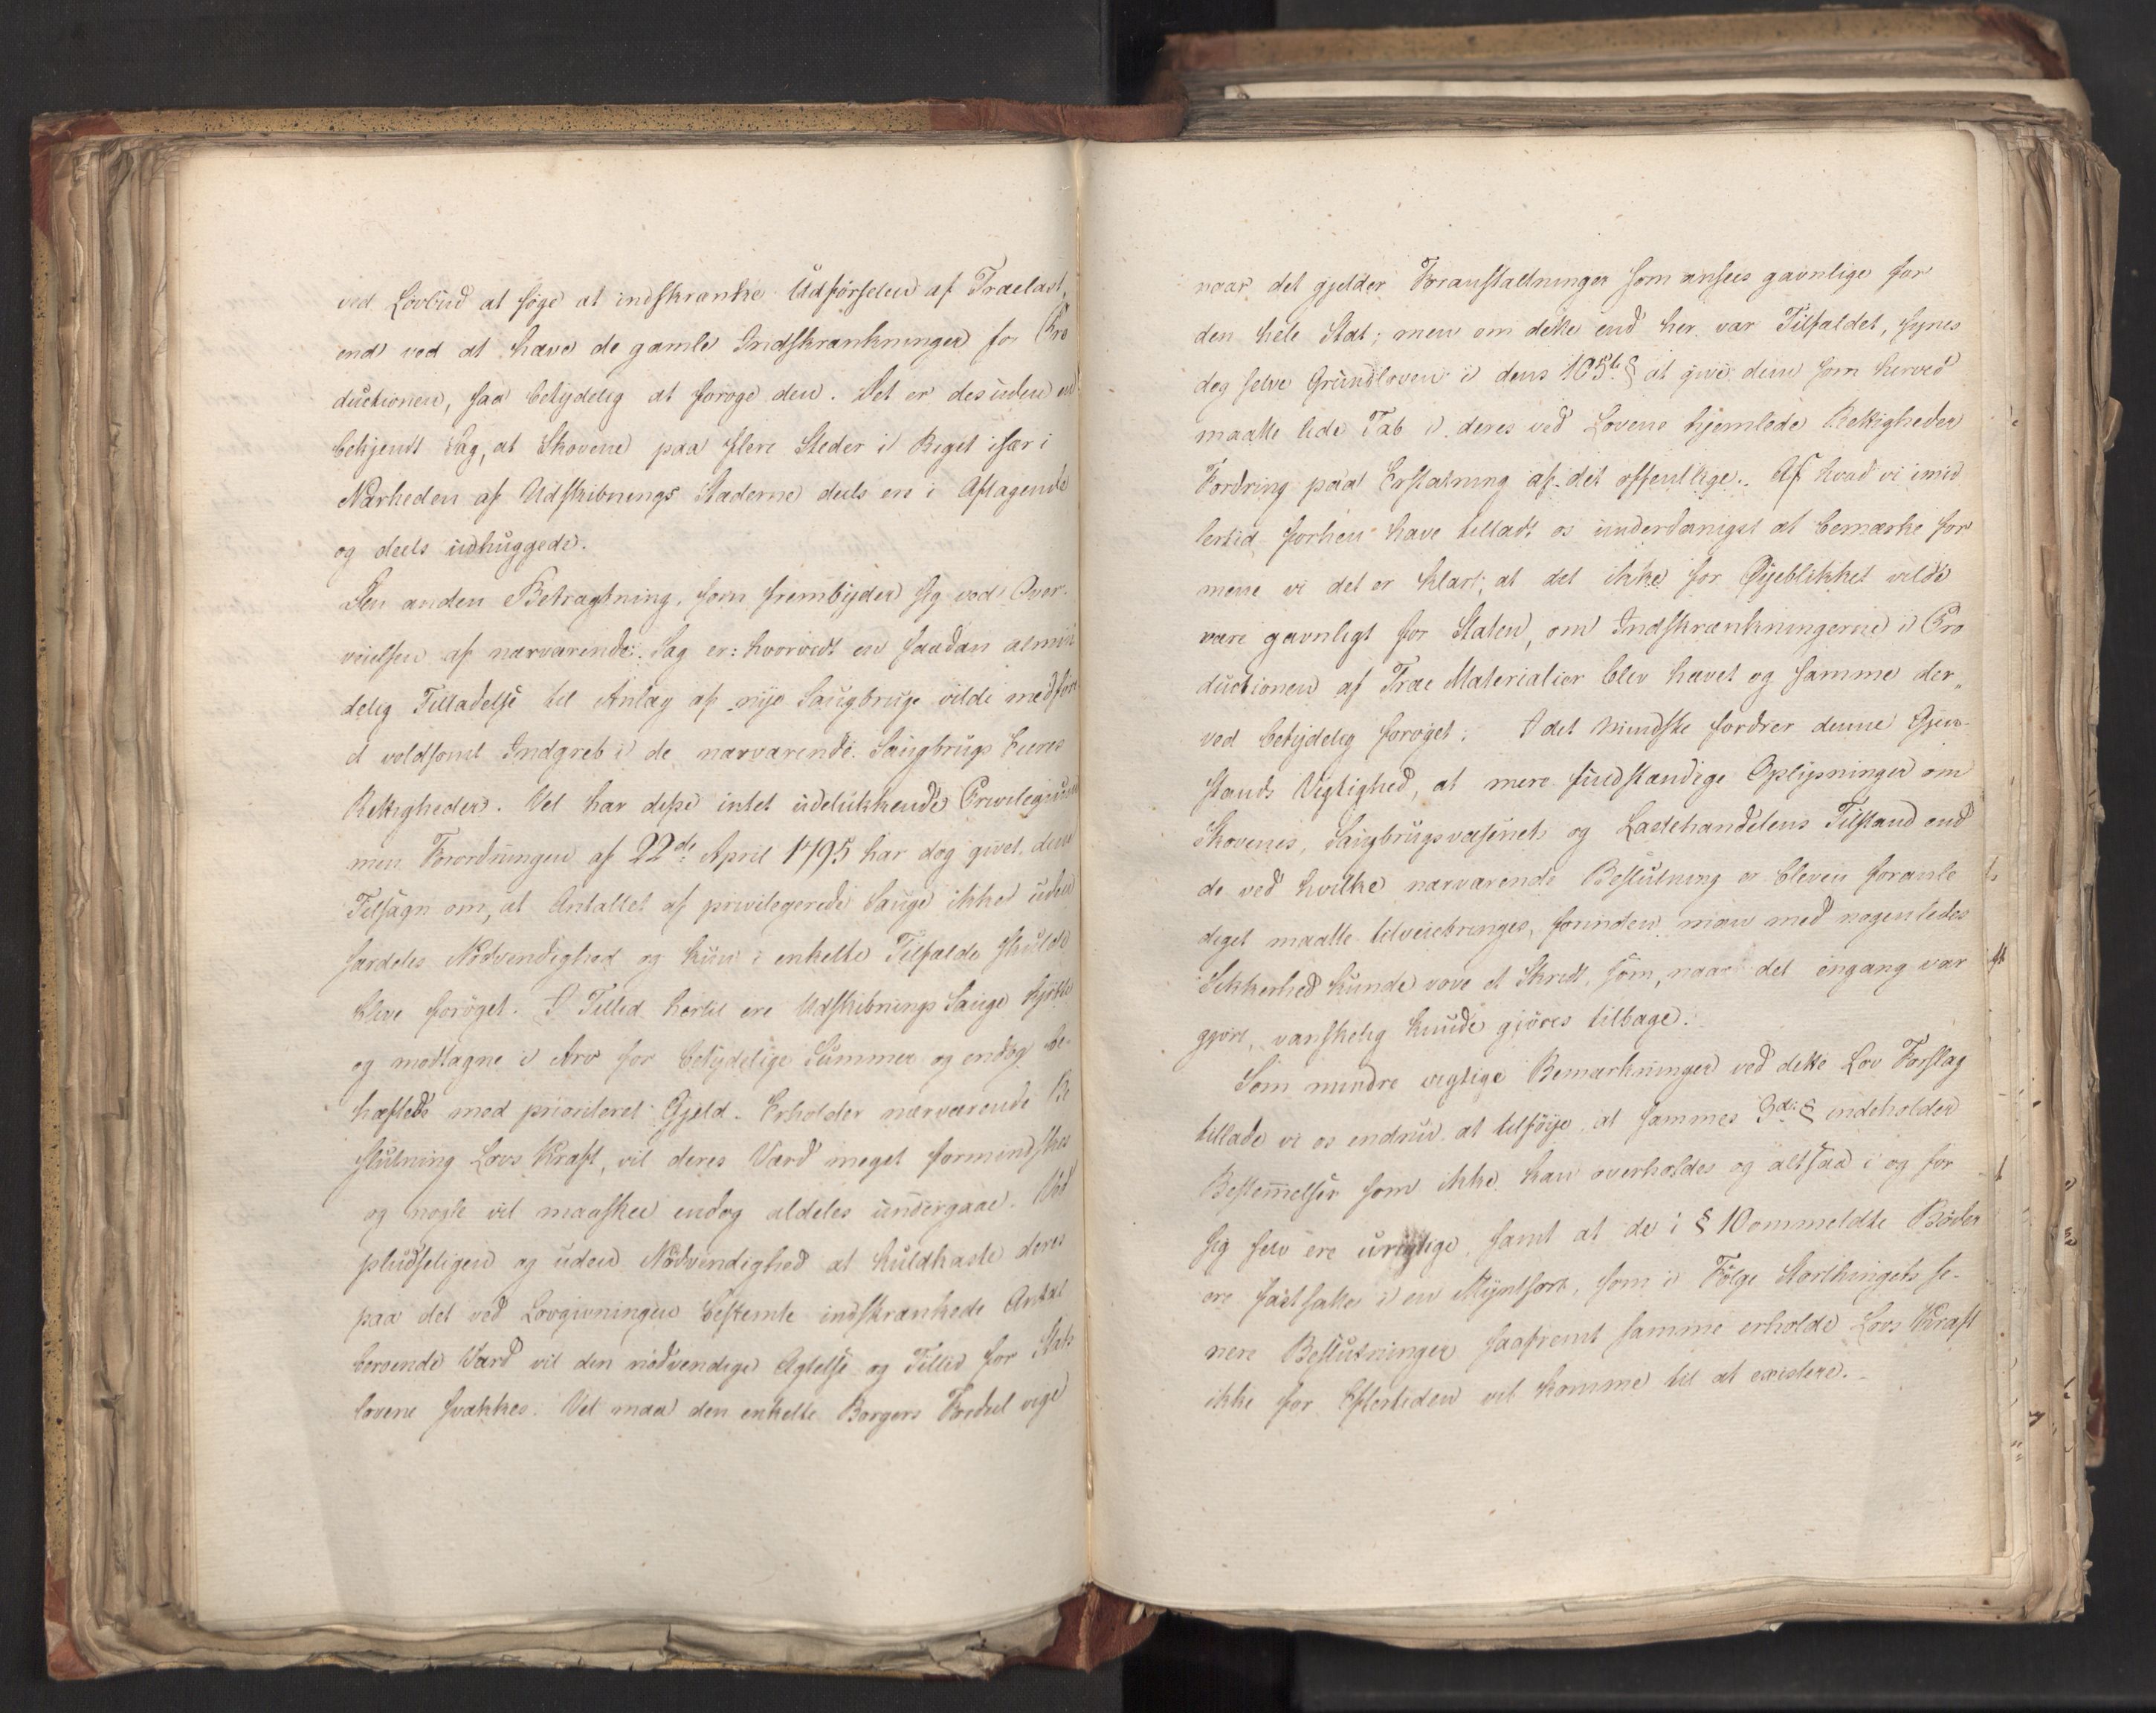 ved Lovbud at søge at indskrænke Udførselen af Trælast,
end ved at hæve de gamle Indskrænkninger for Pro
ductionen, saa betydelig at forøge den. Det er desuden en
bekjendt Sag, at Skovene paa flere Steder i Riget især i
Nærheden af Udskibnings Stæderne deels ere i Aftagende
og deels udhuggede.
Den anden Betragtning, som frembyder sig ved Over-
veielsen af nærværende Sag er: hvorvidt en saadan almin
delig Tilladelse til Anlæg af nye Saugbruge vilde medføre
et voldsomt Indgreb i de nærværende Saugbrugs Eieres
Rettigheder. Vel har disse intet udelukkende Privilegium
men Forordningen af 22de April 1795 har dog givet dem
Tilsagn om, at Antallet af privilegerede Sauge ikke uden
særdeles Nødvendighed og kun i enkelte Tilfælde skulde
blive forøget. I Tillid hertil ere Udskibnings Sauge kjøbte
og modtagne i Arv for betydelige Summer og endog be-
hæftede med prioriteret Gjeld. Erholder nærværende Be
slutning Lovs Kraft, vil deres Værd meget formindskes
og nogle vil maaskee endog aldeles undergaae. Ved
pludseligen og uden Nødvendighed at kuldkaste deres
paa det ved Lovgivningen bestemte indskrænkede Antal
beroende Værd vil den nødvendige Agtelse og Tillid for Stats
lovene svækkes. Vel maa den enkelte Borgers Fordeel vige
naar det gjelder Foranstaltninger som ansees gavnlige for
den hele Stat; men om dette end her var Tilfældet, synes
dog selve Grundloven i dens 105te § at give dem som herved
maatte lide Tab i deres ved Lovene hjemlede Rettigheder
Fordring paa Erstatning af det offentlige. Af hvad vi imid
lertid forhen have tilladt os underdanigst at bemærke for
mene vi det er klart, at det ikke for Øjeblikket vilde
være gavnligt for Staten, om Indskrænkningerne i Pro
ductionen af Træ Materialier blev hævet og samme der„
ved betydelig forøget. I det mindste fordrer denne Gjen-
stands Vigtighed, at mere fuldstændige Oplysninger om
Skovenes, Saugbrugsvæsenets og Lastehandelens Tilstand end
de ved hvilke nærværende Beslutning er bleven foranle
diget maatte tilveiebringes, forinden man med nogenledes
Sikkerhed kunde vove et Skridt, som, naar det engang var
gjort, vanskelig kunde gjøres tilbage.
Som mindre vigtige Bemærkninger ved dette Lov Forslag
tillade vi os endnu at tilføye, at sammes 3die § indeholder
Bestemmelser som ikke kan overholdes og altsaa i og for
sig selv ere urigtige, samt at de i § 10 ommeldte Bøder
ere fastsatte i en Myntsort, som i Følge Storthingets se-
nere Beslutninger saafremt samme erholde Lovs Kraft
ikke for Eftertiden vil komme til at existere.